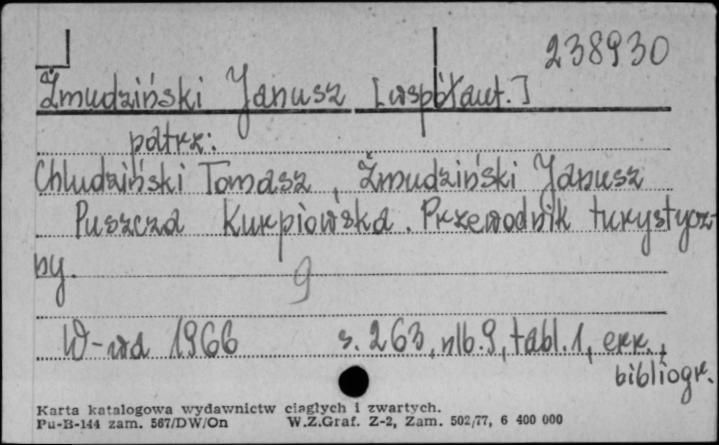 238930
Żmudziński Janusz [współaut.]
patrz:
Chludziński Tomasz, Żmudziński Janusz
Puszcza Kurpiowska. Przewodnik turystycz-
ny.
9
W-wa 1966 s. 263, nlb. 9, tabl. 1, err.,
bibliogr.
Karta katalogowa wydawnictw ciągłych i zwartych.
Pu-B-144 zam. 567/DW/On W.Z.Graf. Z-2, Zam. 502/77, 6 400 000